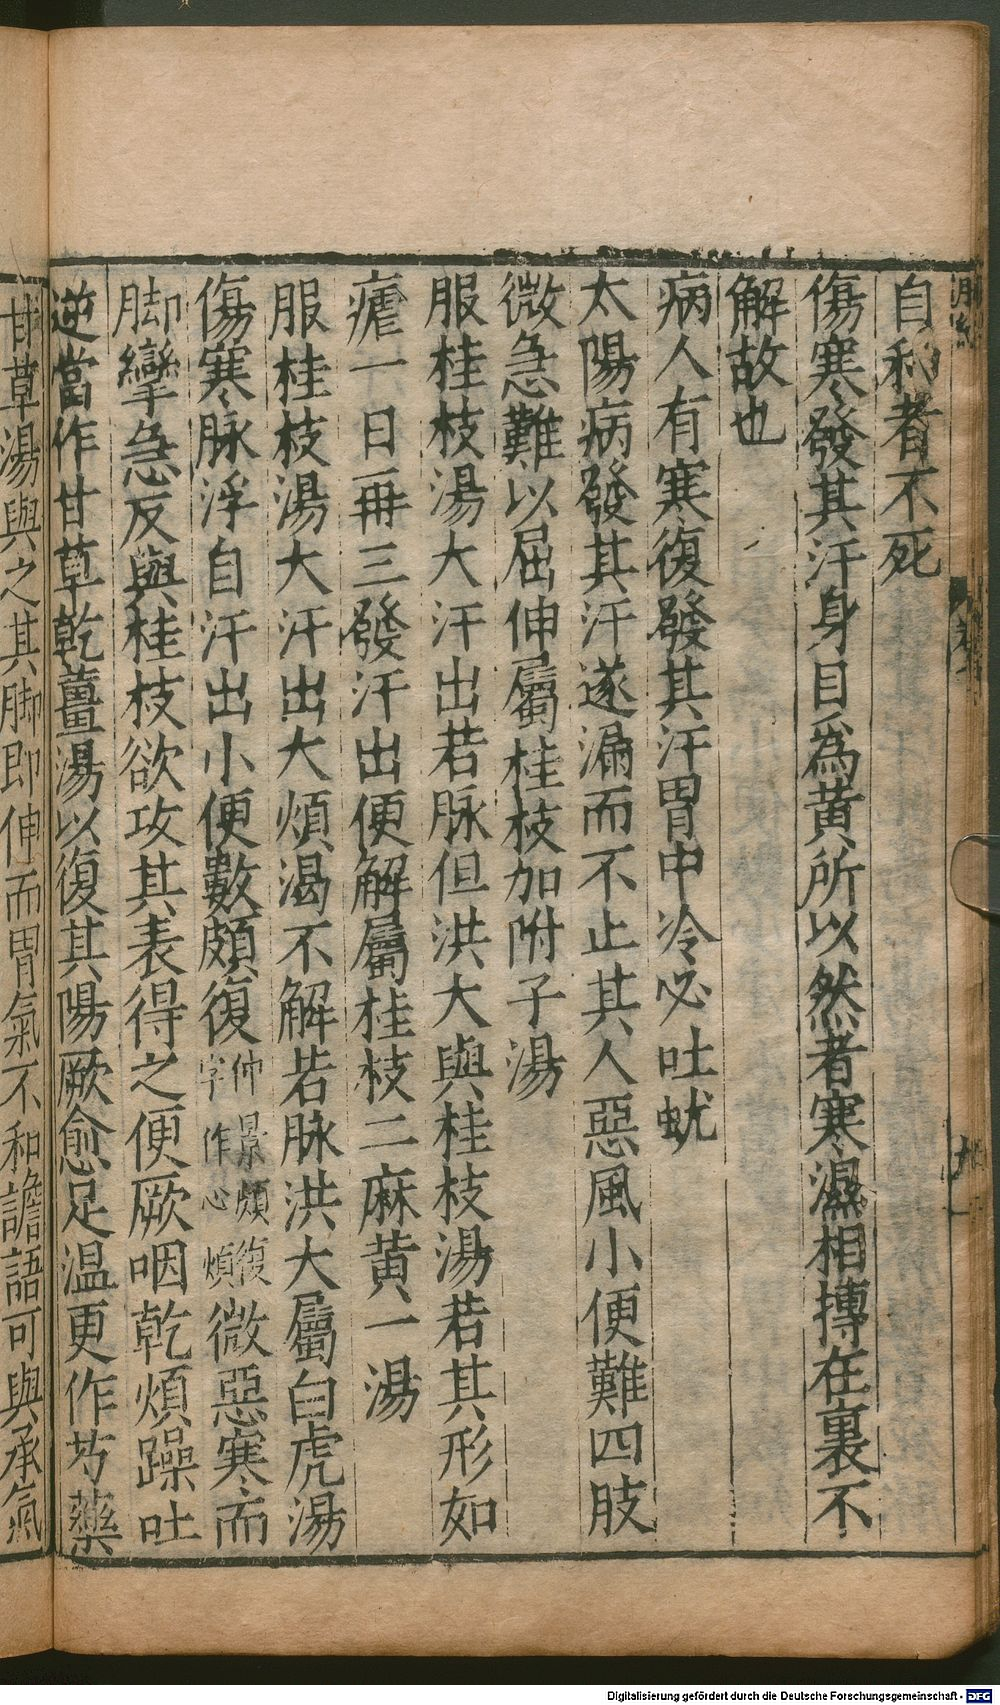 自利者不死
傷寒發其汗身目爲黃所以然者寒濕相搏在裏不
解故也
病人有寒復發其汗胃中冷必吐蚘
太陽病發其汗遂漏而不止其人惡風小便難四肢
微急難以屈伸屬桂枝加附子湯
服桂枝湯大汗出若脉但洪大與桂枝湯若其形如
瘧一日再三發汗出便解屬桂枝二麻黃一湯
服桂枝湯大汗出大煩渴不解若脉洪大屬白虎湯
傷寒脉浮自汗出小便數頗復仲景頗復字作心煩微惡寒而
脚攣急反與桂枝欲攻其表得之便厥咽乾煩躁吐
逆當作甘草乾薑湯以復其陽厥愈足温更作芍藥
甘草湯與之其脚即伸而胃氣不和譫語可與承氣
Digitalisierung gefördert durch die Deutsche Forschungsgemeinschaft - DFG